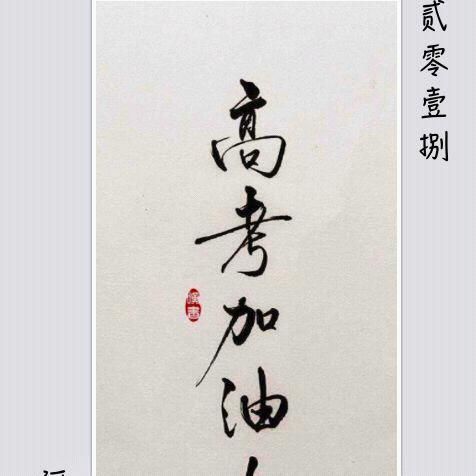 贰零壹捌
高考加油